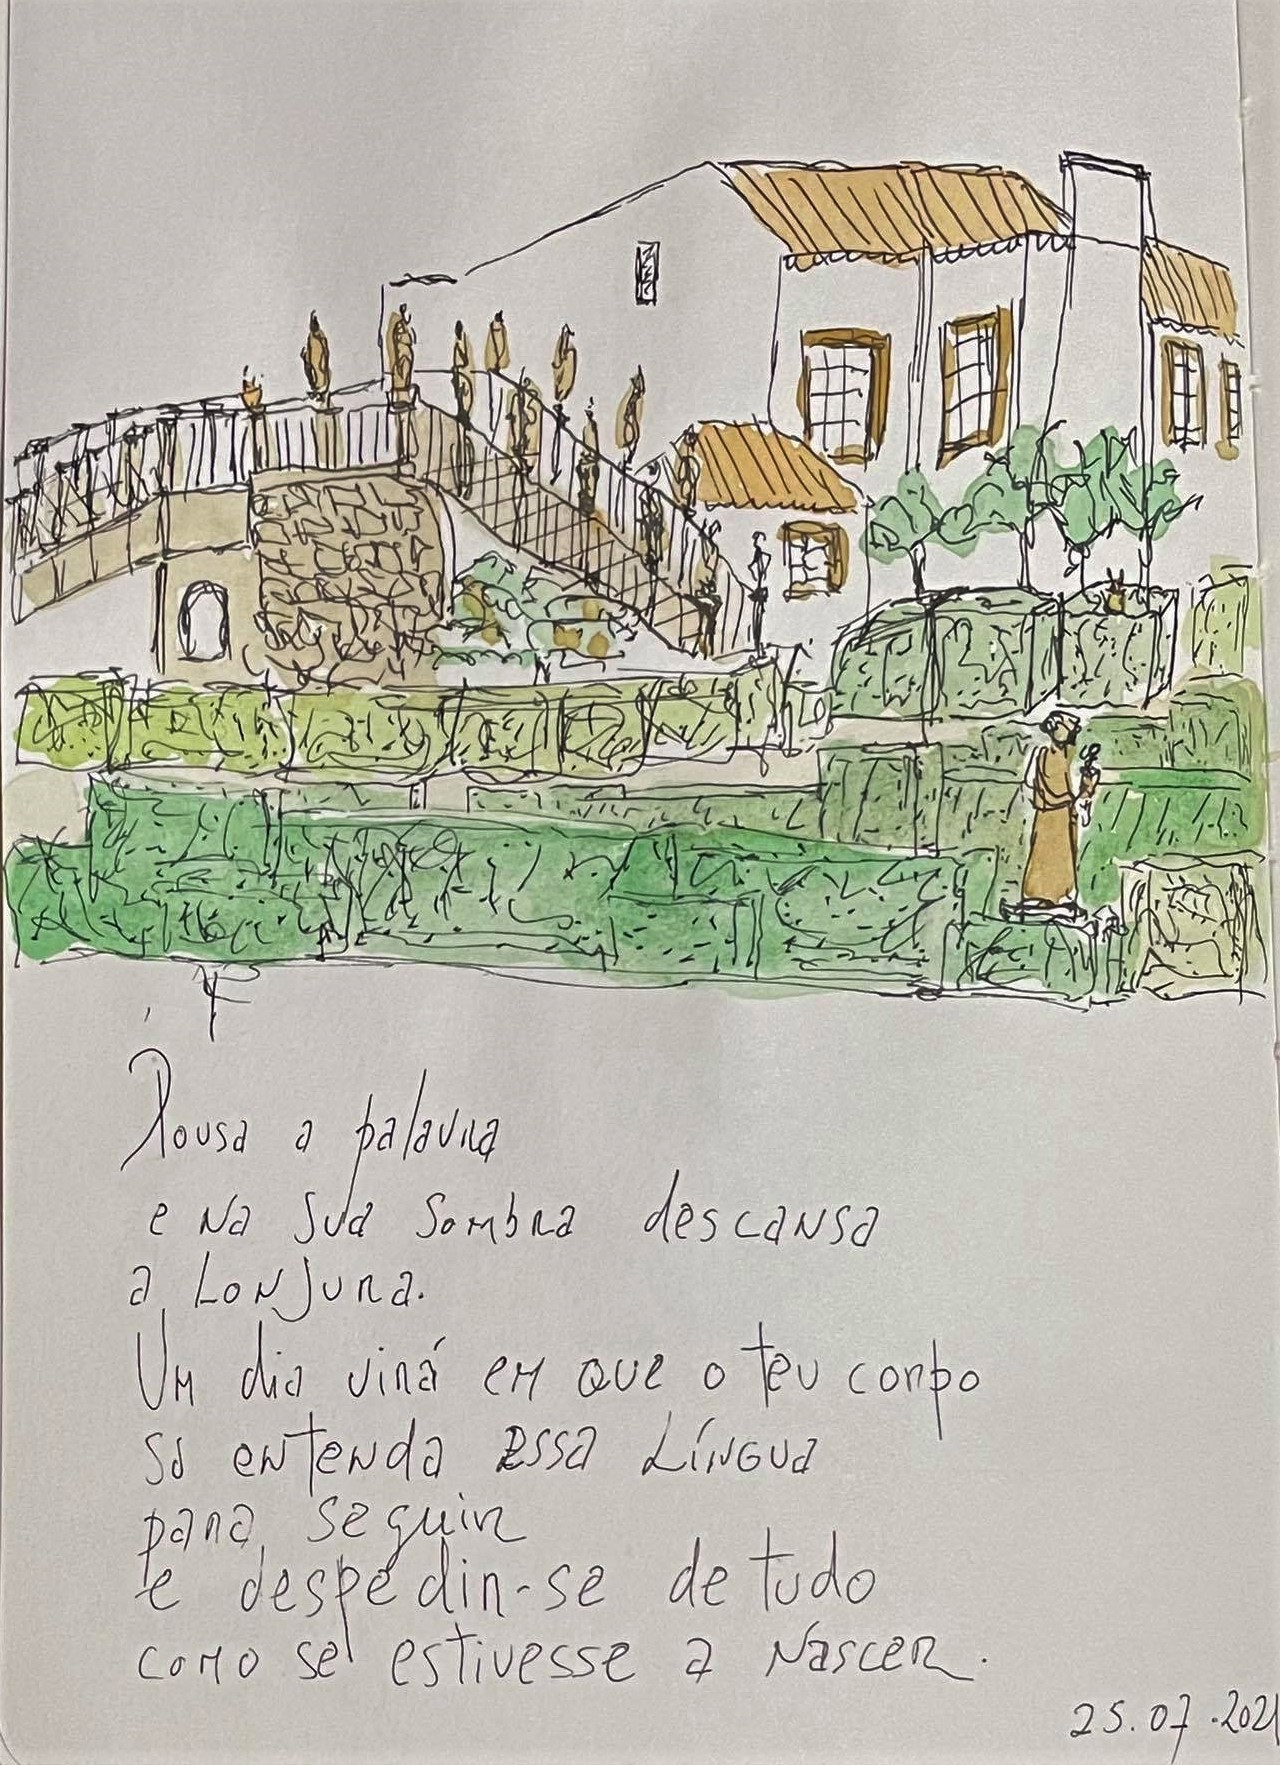 Pousa a palavra
e na sua sombra descansa
a Lonjura.
Um dia virá em que o teu corpo
só entenda essa Língua
para seguir
e despedir-se de tudo
como se estivesse a Nascer.
25.07.2021